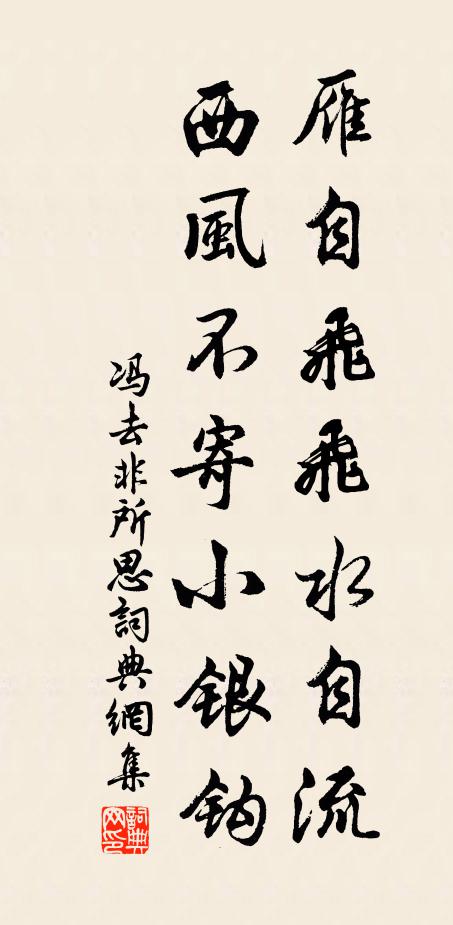 雁自飛飛水自流
西風不寄小銀鈎
冯去非所思詞典網集
詞典網印